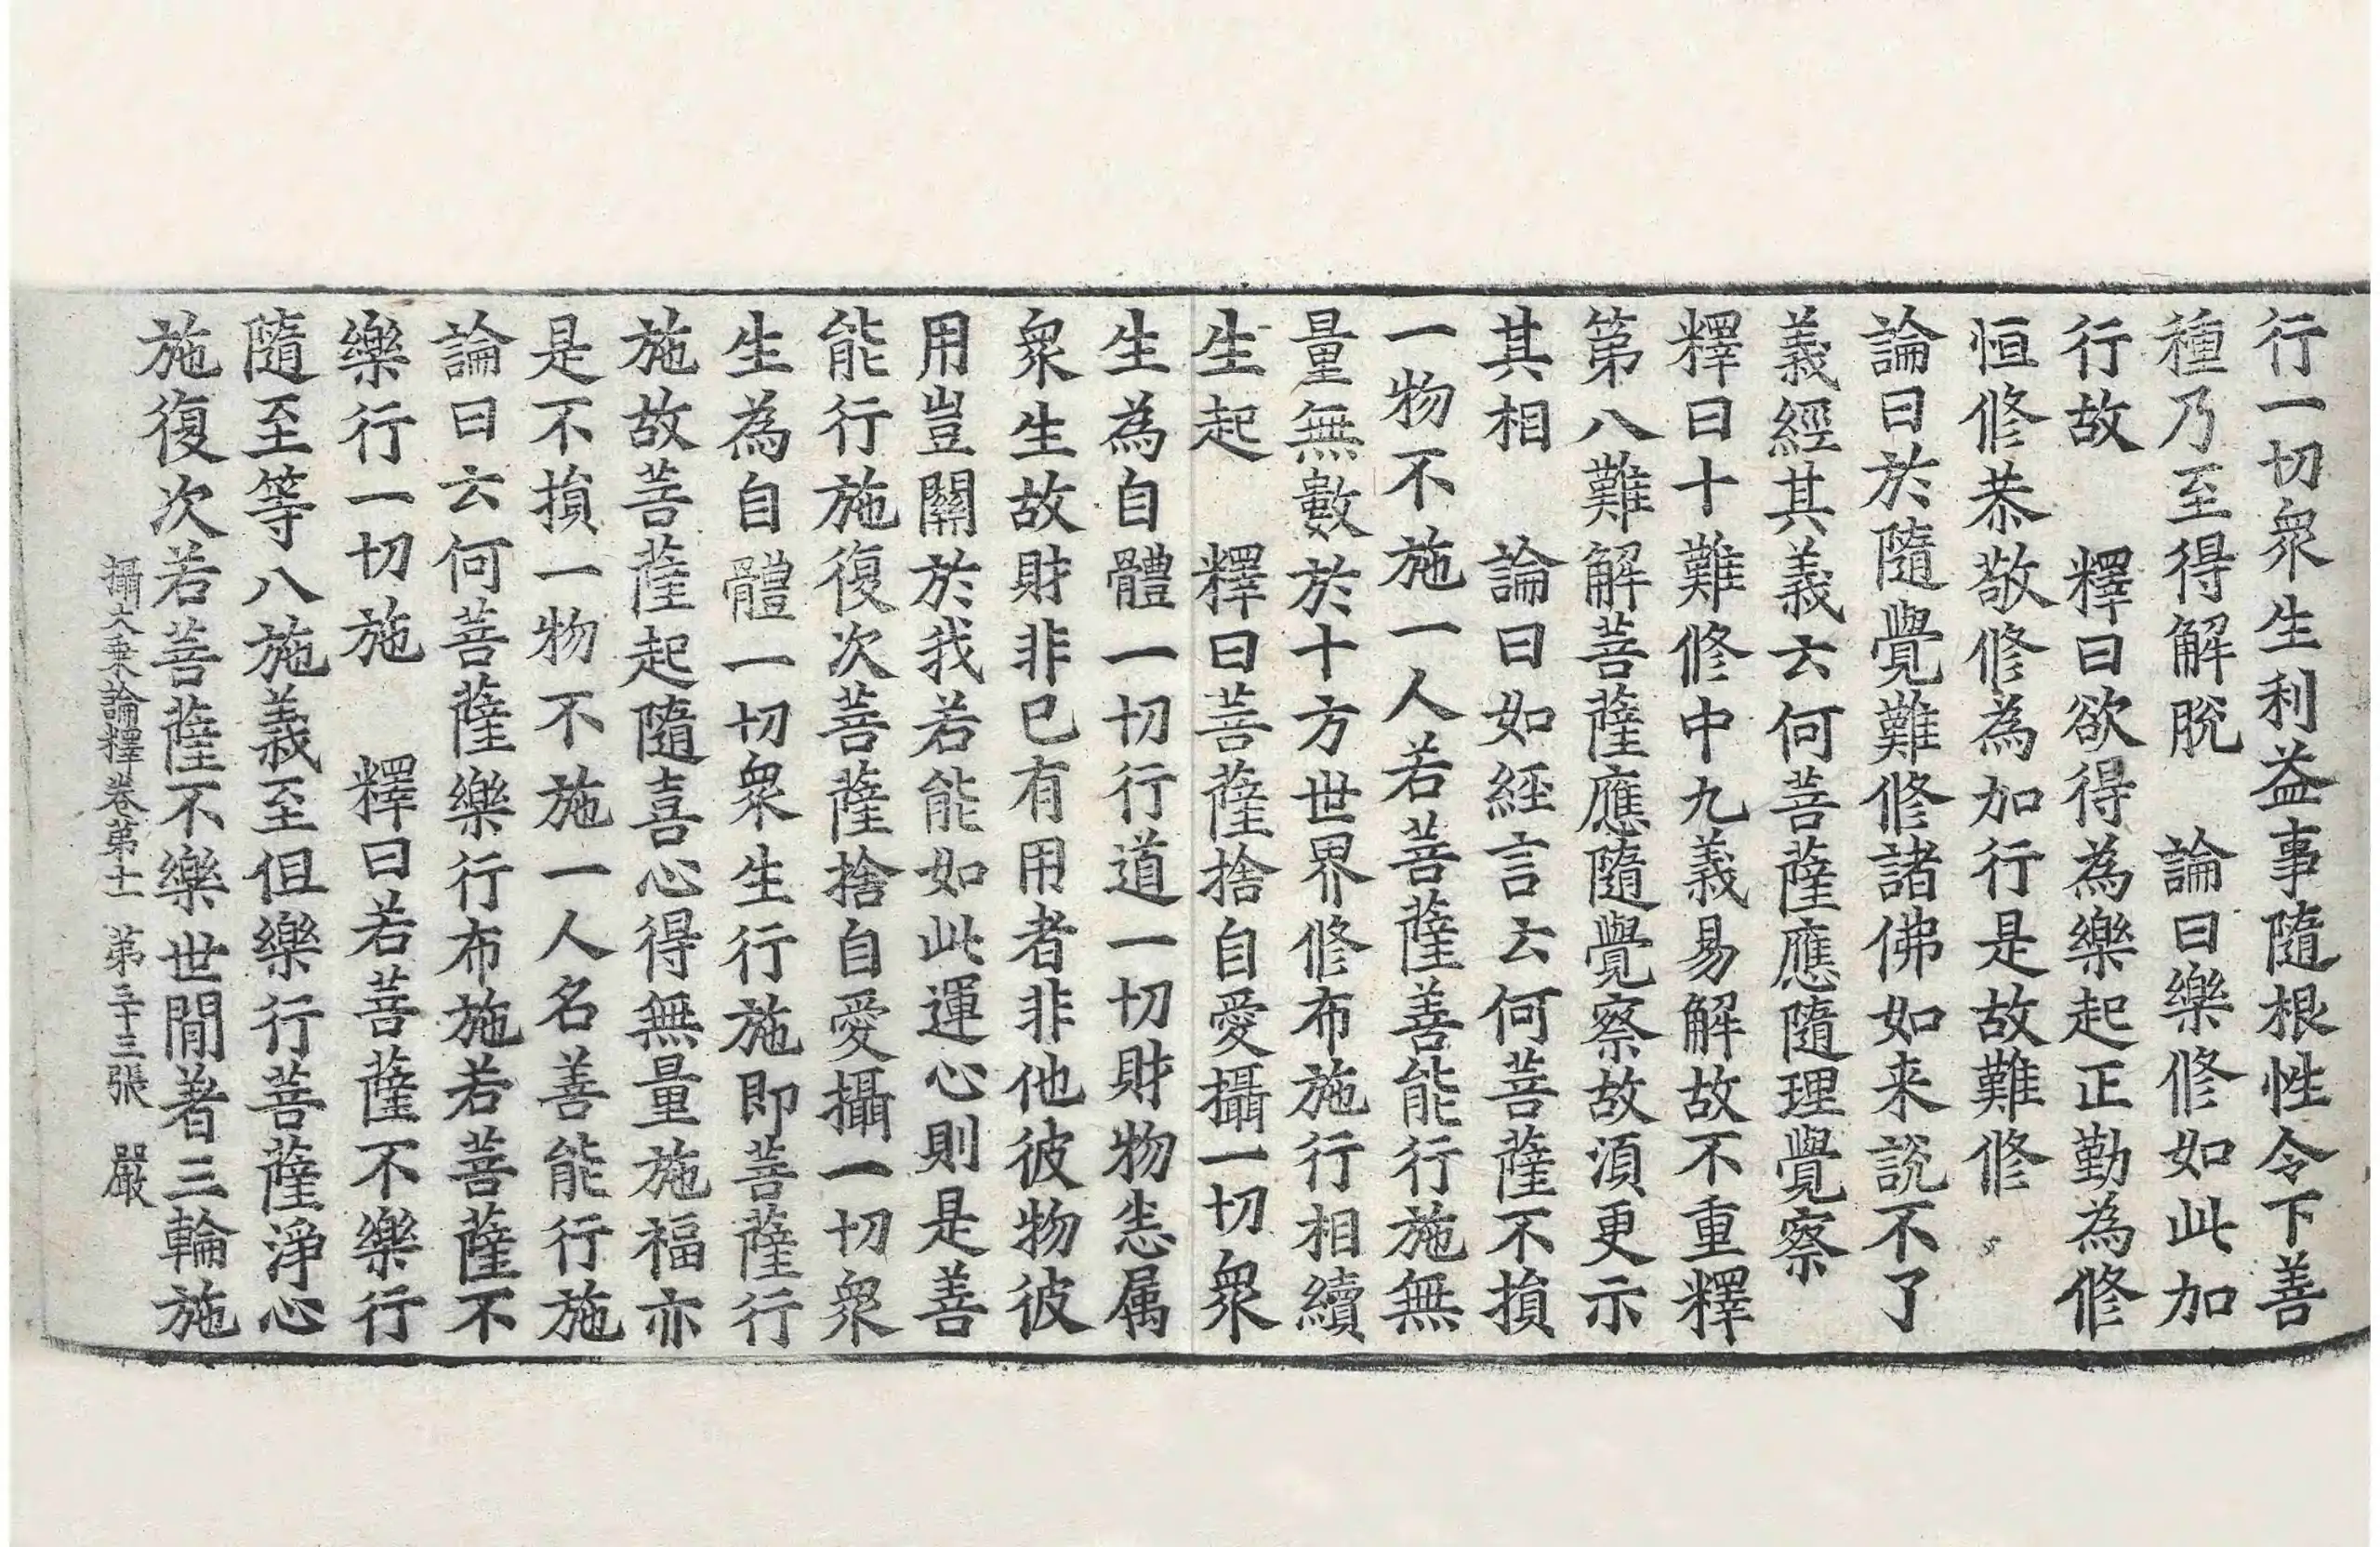 行一切衆生利益事隨根性令下善
種乃至得解脫　論曰樂修如此加
行故　釋曰欲得為樂起正勤為修
恒修恭敬修為加行是故難修
論曰於隨覺難修諸佛如来說不了
義經其義云何菩薩應隨理覺察
釋曰十難修中九義易解故不重釋
第八難解菩薩應隨覺察故湏更示
其相　論曰如經言云何菩薩不損
一物不施一人若菩薩善能行施無
量無數於十方世界修布施行相續
生起　釋曰菩薩捨自愛攝一切衆
生為自體一切行道一切財物恙属
衆生故財非已有用者非他彼物彼
用豈關於我若能如此運心則是善
能行施復次菩薩捨自愛攝一切衆
生為自體一切衆生行施即菩薩行
施故菩薩起隨喜心得無量施福亦
是不損一物不施一人名善能行施
論曰云何菩薩樂行布施若菩薩不
樂行一切施　釋曰若菩薩不樂行
隨至等八施義至但樂行菩薩淨心
施復次若菩薩不樂世間著三輪施
攝大乗論釋卷第十一　第三十三張　嚴